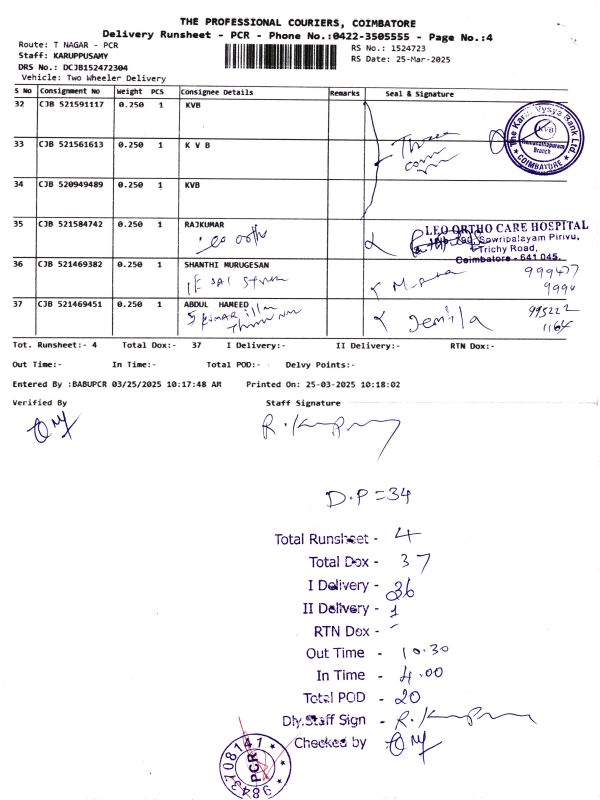 THE PROFESSIONAL COURIERS, COIMBATORE
Delivery Runsheet - PCR - Phone No.:0422-3505555 - Page No.:4
Route: T NAGAR - PCR
RS No.: 1524723
Staff: KARUPPUSAMY
RS Date: 25-Mar-2025
DRS No.: DCJB152472304
Vehicle: Two Wheeler Delivery
S No Consignment No Weight PCS Consignee Details Remarks Seal & Signature
32 CJB 521591117 0.250 1 KVB
The Karur Vysya Bank Ltd.
KVB
Branch
COIMBATORE
33 CJB 521561613 0.250 1 K V B
34 CJB 520949489 0.250 1 KVB
35 CJB 521584742 0.250 1 RAJKUMAR
Leo ortho
LEO ORTHO CARE HOSPITAL
Sowripalayam Pirivu,
Trichy Road,
Coimbatore - 641 045.
36 CJB 521469382 0.250 1 SHANTHI MURUGESAN
37 CJB 521469451 0.250 1 ABDUL HAMEED
Jemila 995222
1164
Tot. Runsheet:- 4 Total Dox:- 37 I Delivery:- II Delivery:- RTN Dox:-
Out Time:- In Time:- Total POD:- Delvy Points:-
Entered By :BABUPCR 03/25/2025 10:17:48 AM Printed On: 25-03-2025 10:18:02
Verified By Staff Signature
D.P = 34
Total Runsheet - 4
Total Dox - 37
I Delivery - 36
II Delivery - 1
RTN Dox - -
Out Time - 10.30
In Time - 4.00
Total POD - 20
Dly.Staff Sign -
Checked by
9843708141
PCR